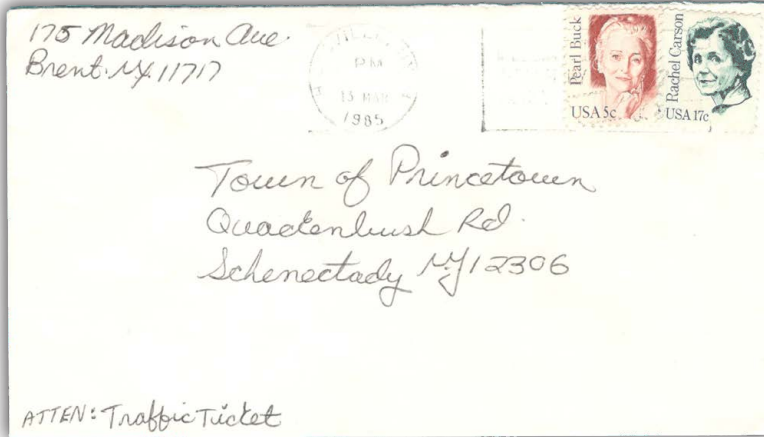 175 Madison Ave.
Brent. N.Y. 11717
PM
13 MAR
1985
Pearl Buck
USA 5c
Rachel Carson
USA 17c
Town of Princetown
Quackenbush Rd.
Schenectady N.Y 12306
ATTEN: Traffic Ticket